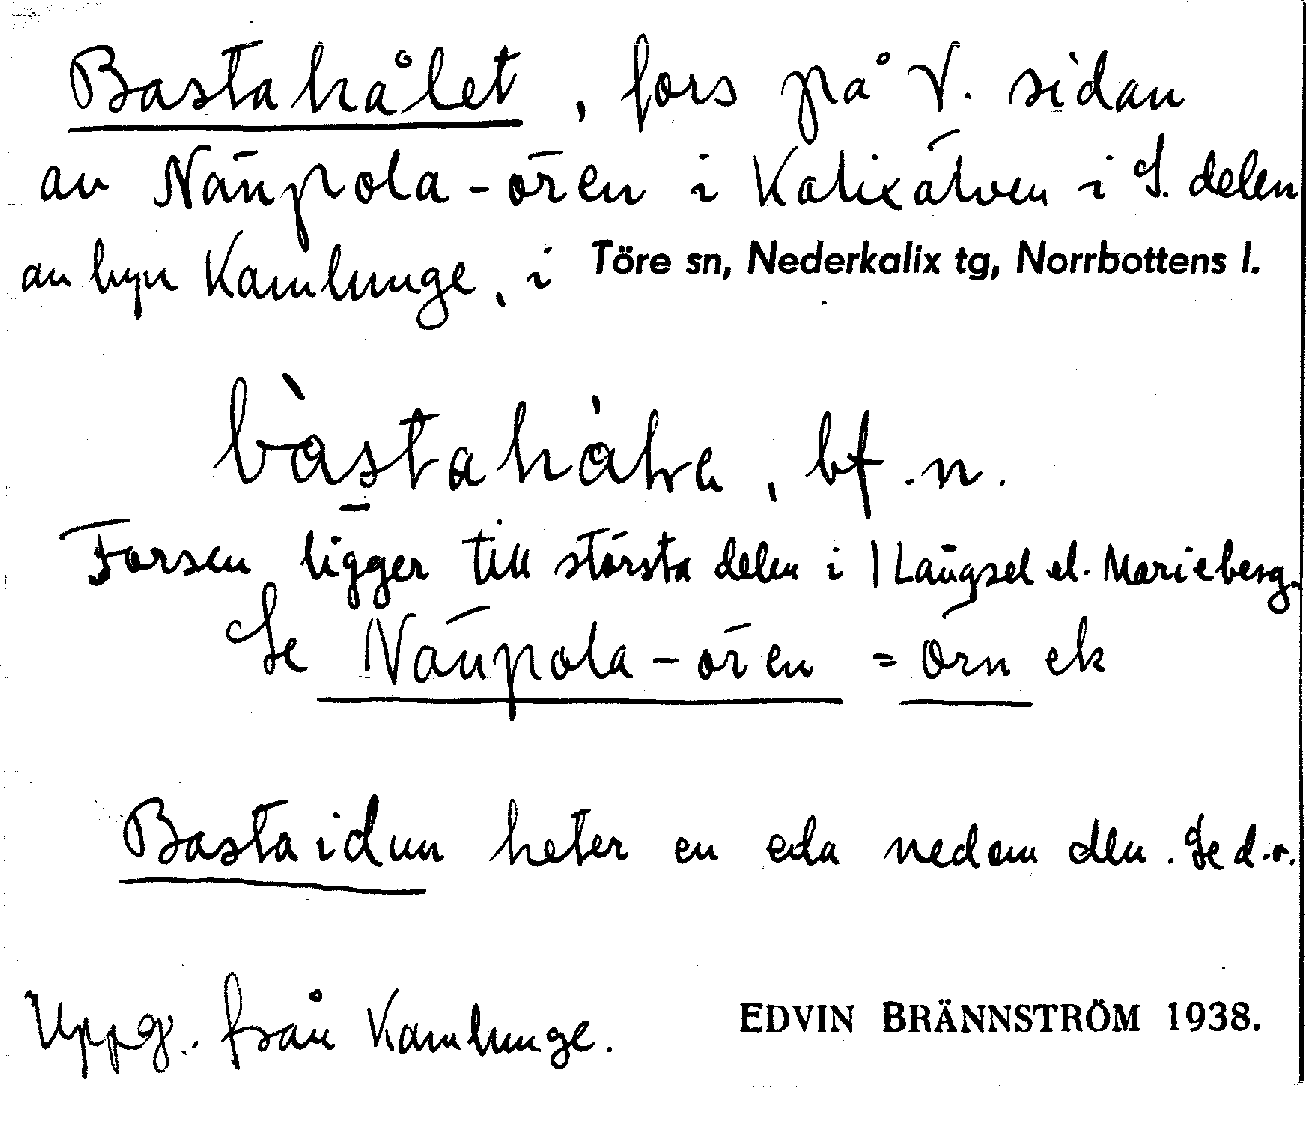 Bastahålet, fors på V. sidan
av Näupola-ören i Kalixälven i S. delen
av byn Kamlunge, i Töre sn, Nederkalix tg, Norrbottens l.
bf. n.
Forsen ligger till största delen i Långsel el. Marieberg.
Se Näupola-ören = örn ek
Bastaidun heter en eda nedom den. Se d.o.
Uppg. från Kamlunge.
EDVIN BRÄNNSTRÖM 1938.